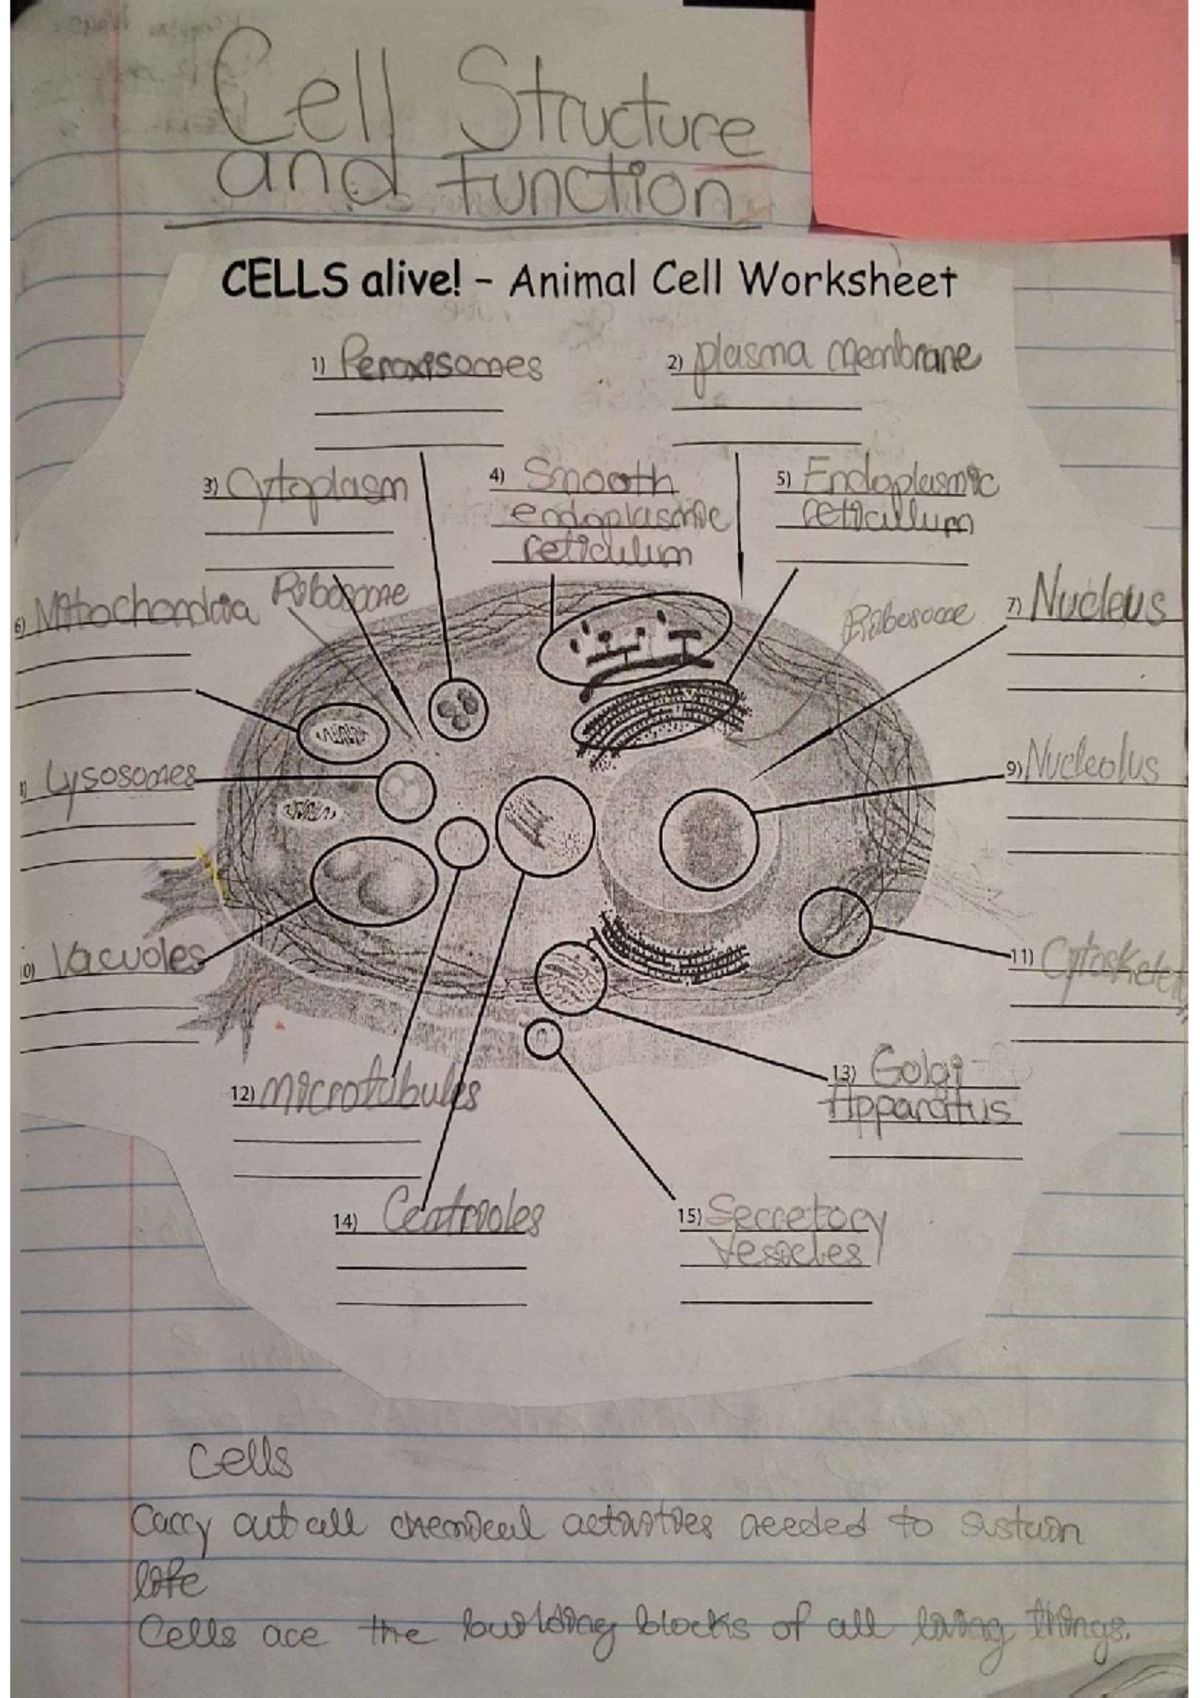 Cell Structure
and Function
CELLS alive! - Animal Cell Worksheet
1) Peroxisomes
2) plasma membrane
3) Cytoplasm
4) Smooth
endoplasmic
reticulum
5) Endoplasmic
reticullum
6) Mitochondria
Ribosome
Ribosome
7) Nucleus
8) Lysosomes
9) Nucleolus
10) Vacuoles
11) Cytoskele
12) microtubules
13) Golgi
Apparatus
14) Centrioles
15) Secretory
Vesicles
Cells
Carry out all chemical activities needed to sustain
life
Cells are the building blocks of all living things.